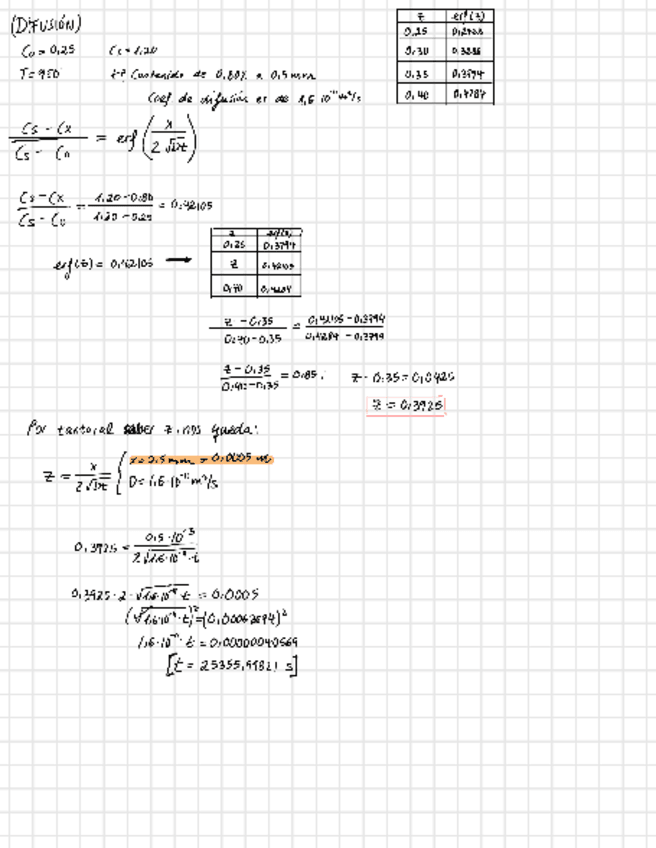 (DIFUSIÓN)
C₀ = 0,25 Cs = 1,20
T = 950 t? Contenido de 0,80% a 0,5 mm
Coef de difusión es de 1,6·10⁻¹¹ m²/s
z erf(z)
0,25 0,2763
0,30 0,3286
0,35 0,3794
0,40 0,4284
Cs - Cx / Cs - C₀ = erf (x / 2√Dt)
Cs - Cx / Cs - C₀ = 1.20 - 0.80 / 1.20 - 0.25 = 0,42105
erf(z) = 0,42105 →
z erf(z)
0,35 0,3794
z 0,42105
0,40 0,4284
z - 0,35 / 0,40 - 0,35 = 0,42105 - 0,3794 / 0,4284 - 0,3794
z - 0,35 / 0,40 - 0,35 = 0,85; z - 0,35 = 0,0425
z = 0,3925
Por tanto al saber z, nos queda:
z = x / 2√Dt { x = 0,5 mm = 0,0005 m
D = 1,6·10⁻¹¹ m²/s
0,3925 = 0,5·10⁻³ / 2√1,6·10⁻¹¹·t
0,3925 · 2 · √1,6·10⁻¹¹ t = 0,0005
(√1,6·10⁻¹¹·t)² = (0,00063694)²
1,6·10⁻¹¹ · t = 0,00000040569
[t = 25355,99821 s]